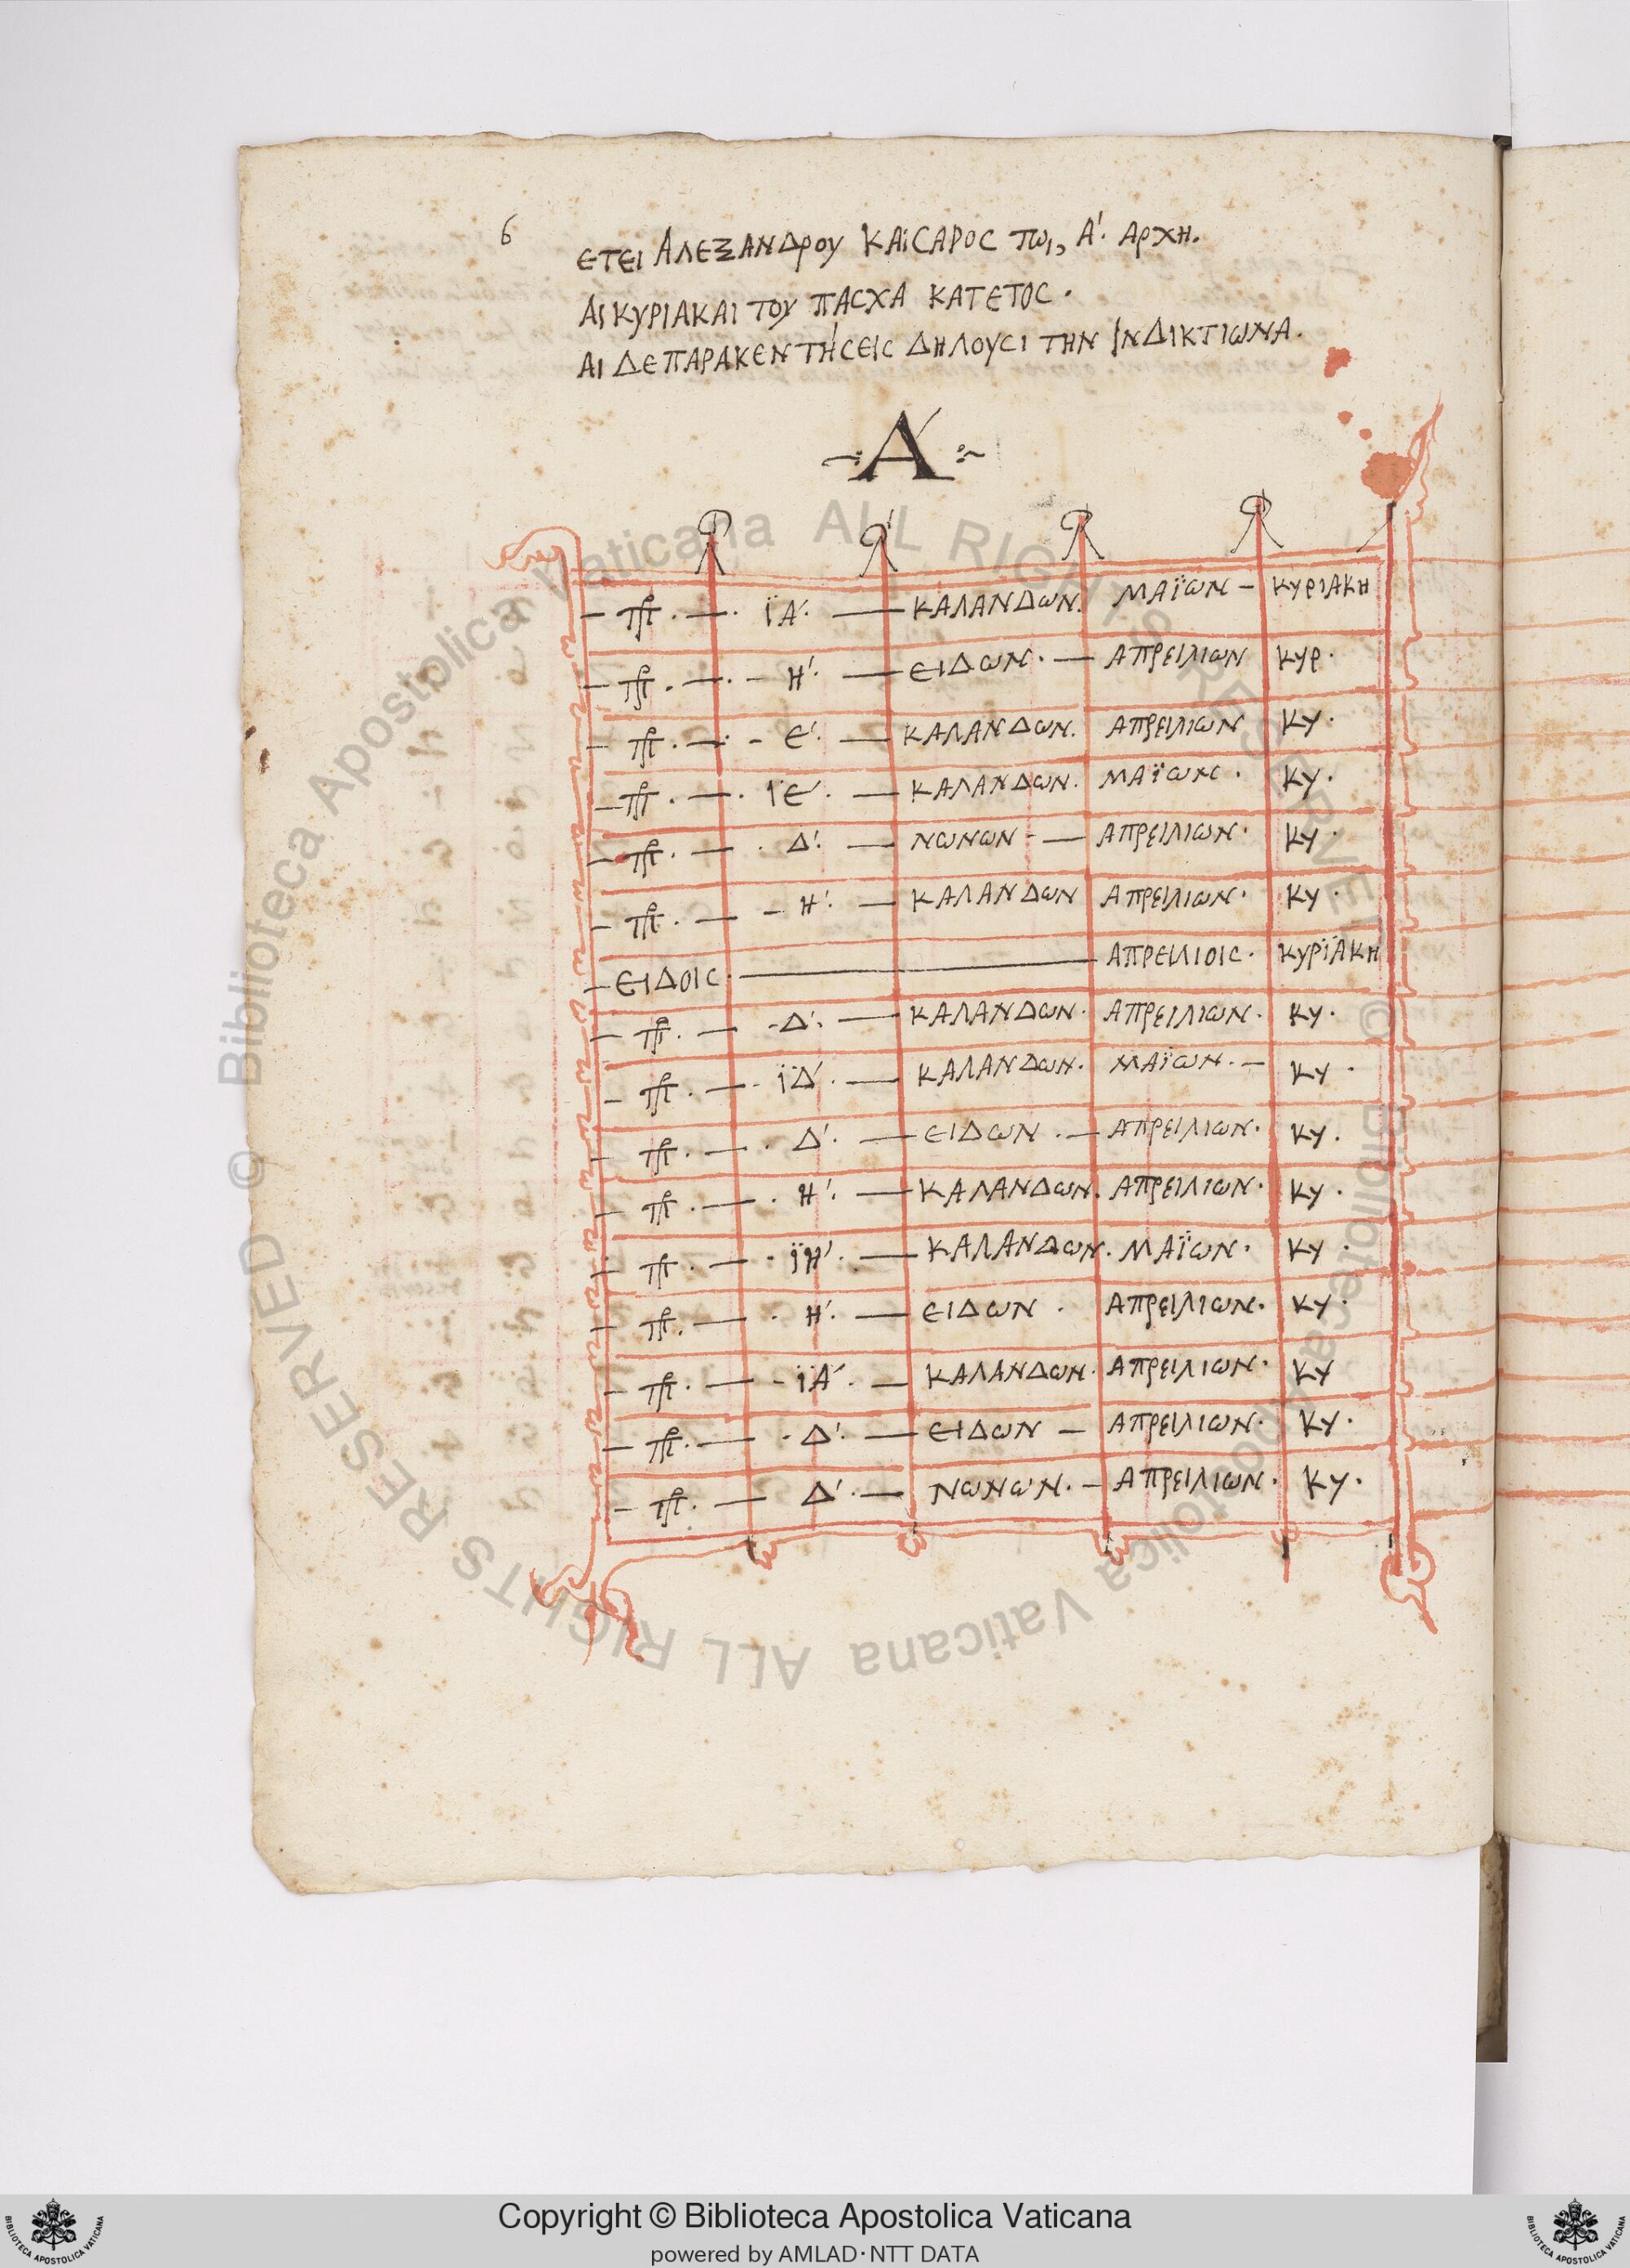 6
ΕΤΕΙ ΑΛΕΞΑΝΔΡΟΥ ΚΑΪϹΑΡΟϹ ΤΩΙ, Α΄. ΑΡΧΗ.
ΑΙ ΚΥΡΙΑΚΑΙ ΤΟΥ ΠΑϹΧΑ ΚΑΤΕΤΟϹ.
ΑΙ ΔΕ ΠΑΡΑΚΕΝΤΉϹΕΙϹ ΔΗΛΟΥϹΙ ΤΗΝ ΙΝΔΙΚΤΙΩΝΑ.
Α΄
ΪΑ΄. — ΚΑΛΑΝΔΩΝ. ΜΑΪΩΝ — ΚΥΡΙΑΚΗ
Η΄. — ΕΙΔΩΝ. — ΑΠΡΕΙΛΙΩΝ ΚΥΡ.
Ε΄. — ΚΑΛΑΝΔΩΝ. ΑΠΡΕΙΛΙΩΝ ΚΥ.
ΙΕ΄. — ΚΑΛΑΝΔΩΝ. ΚΥ.
Δ΄. — ΝΩΝΩΝ — ΑΠΡΕΙΛΙΩΝ. ΚΥ.
Η΄. — ΚΑΛΑΝΔΩΝ ΑΠΡΕΙΛΙΩΝ. ΚΥ.
ΕΙΔΟΙϹ. — ΑΠΡΕΙΛΙΟΙϹ. ΚΥΡΪΑΚΗ
Δ΄. — ΚΑΛΑΝΔΩΝ. ΑΠΡΕΙΛΙΩΝ. ΚΥ.
ΪΔ΄. — ΚΑΛΑΝΔΩΝ. ΜΑΪΩΝ. — ΚΥ.
Δ΄. — ΕΙΔΩΝ. — ΑΠΡΕΙΛΙΩΝ. ΚΥ.
Η΄. — ΚΑΛΑΝΔΩΝ. ΑΠΡΕΙΛΙΩΝ. ΚΥ.
ΪΗ΄. — ΚΑΛΑΝΔΩΝ. ΜΑΪΩΝ. ΚΥ.
Η΄. — ΕΙΔΩΝ. ΑΠΡΕΙΛΙΩΝ. ΚΥ.
ΪΑ΄. — ΚΑΛΑΝΔΩΝ. ΑΠΡΕΙΛΙΩΝ. ΚΥ
Δ΄. — ΕΙΔΩΝ — ΑΠΡΕΙΛΙΩΝ. ΚΥ.
Δ΄. — ΝΩΝΩΝ. — ΑΠΡΕΙΛΙΩΝ. ΚΥ.
© Biblioteca Apostolica Vaticana ALL RIGHTS RESERVED © Biblioteca Apostolica Vaticana ALL RIGHTS RESERVED
Copyright © Biblioteca Apostolica Vaticana
powered by AMLAD·NTT DATA
BIBLIOTECA APOSTOLICA VATICANA
BIBLIOTECA APOSTOLICA VATICANA